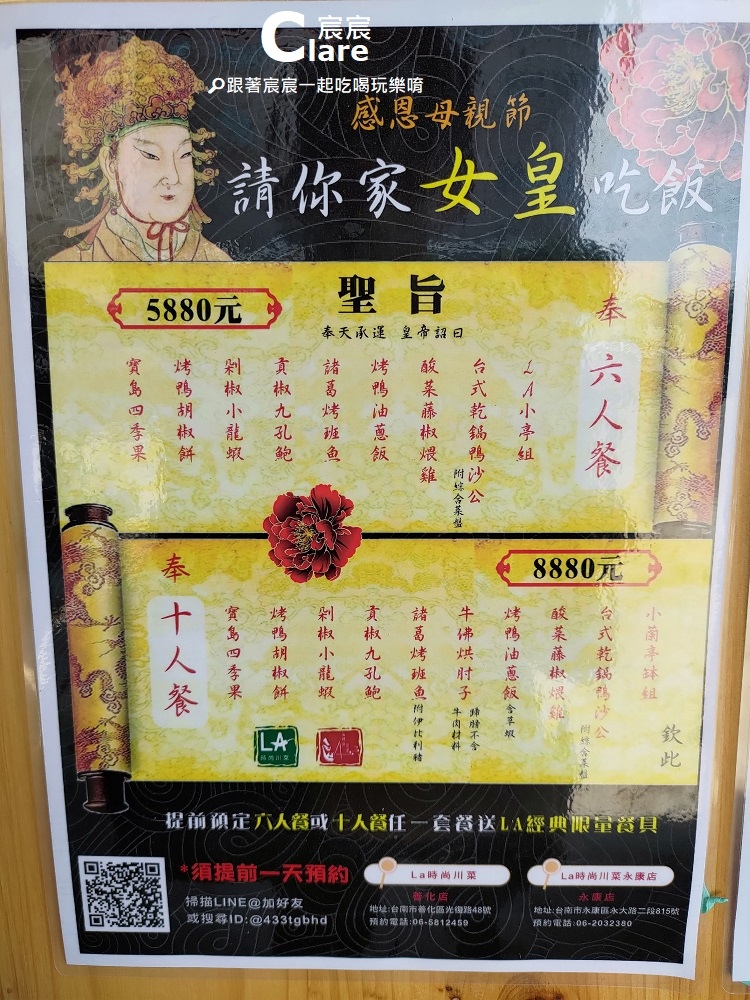 Clare
宸宸
跟著宸宸一起吃喝玩樂唷
感恩母親節
請你家女皇吃飯
5880元
聖旨
奉天承運 皇帝詔曰
奉
六人餐
LA小亭組
台式乾鍋鴨沙公
附綜合菜盤
酸菜藤椒煨雞
烤鴨油蔥飯
諸葛烤班魚
貢椒九孔鮑
剁椒小龍蝦
烤鴨胡椒餅
寶島四季果
8880元
奉
十人餐
小蘭亭缽組
台式乾鍋鴨沙公
附綜合菜盤
酸菜藤椒煨雞
烤鴨油蔥飯
含草蝦
牛佛烘肘子
蹄膀不含
牛肉材料
諸葛烤班魚
附伊比利豬
貢椒九孔鮑
剁椒小龍蝦
烤鴨胡椒餅
寶島四季果
欽此
LA
時尚川菜
提前預定六人餐或十人餐任一套餐送LA經典限量餐具
*須提前一天預約
掃描LINE@加好友
或搜尋ID:@433tgbhd
La時尚川菜
善化店
地址:台南市善化區光復路48號
預約電話:06-5812459
La時尚川菜永康店
永康店
地址:台南市永康區永大路二段815號
預約電話:06-2032380